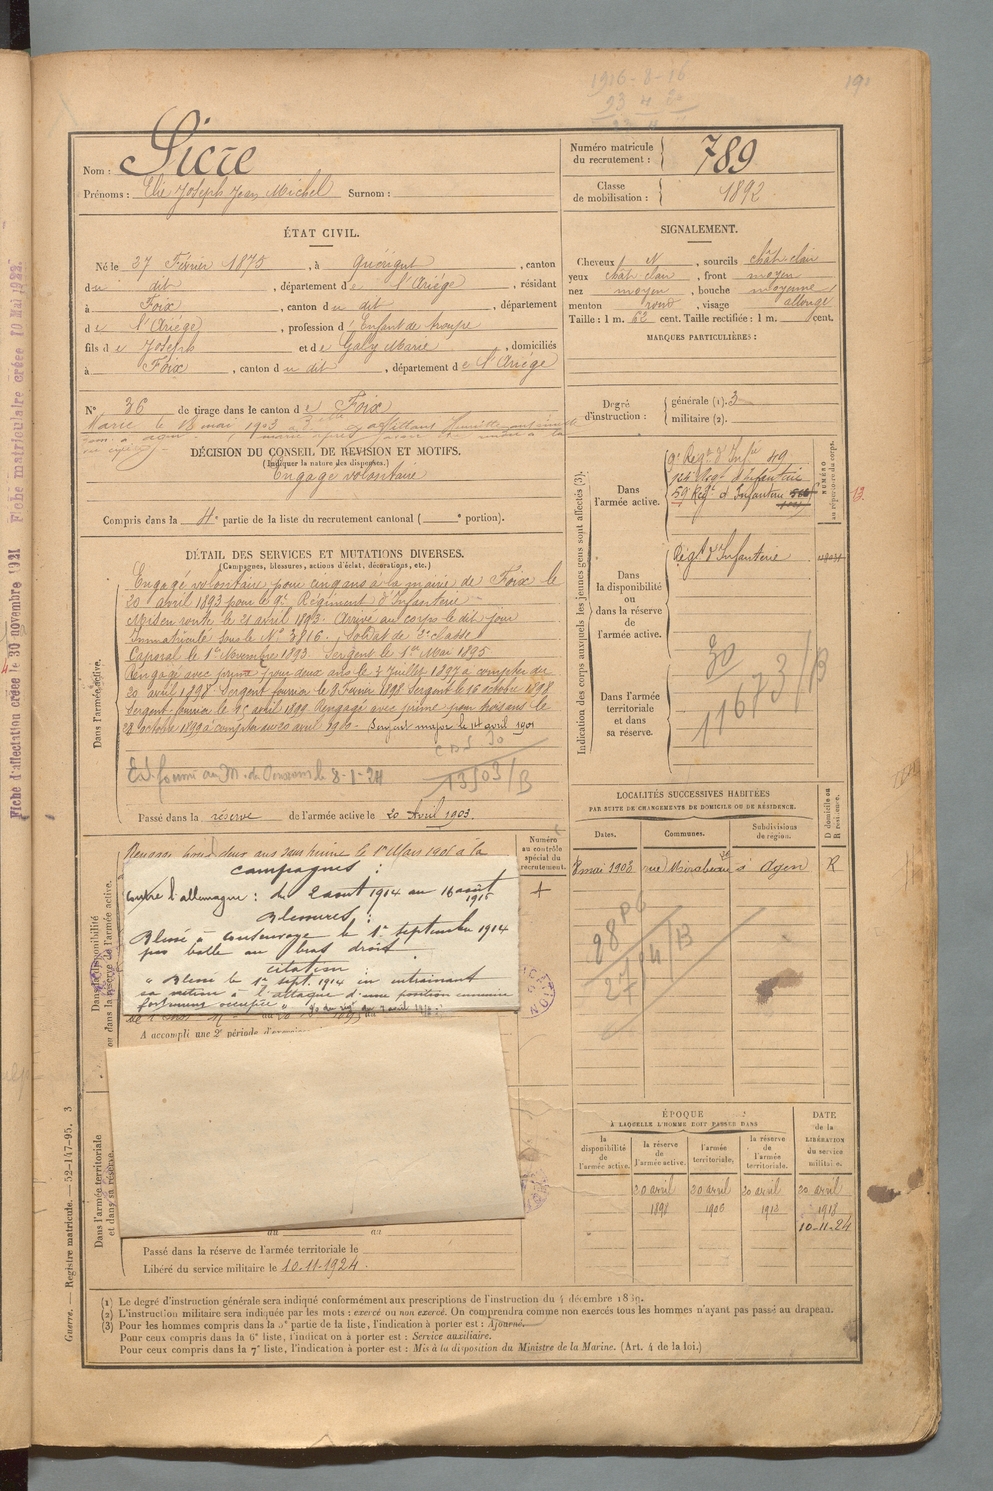 1916-8-16
191
Nom : Sicre
Prénoms : Elie Joseph Jean Michel Surnom :
Numéro matricule du recrutement : 789
Classe de mobilisation : 1892
ÉTAT CIVIL.
Né le 27 Février 1875, à Quérigut, canton
du dit, département de l'Ariège, résidant
à Foix, canton du dit, département
de l'Ariège, profession d'Enfant de troupe
fils de Joseph et de Galy Marie, domiciliés
à Foix, canton du dit, département de l'Ariège
SIGNALEMENT.
Cheveux N, sourcils chât-clair
yeux chât-clair, front moyen
nez moyen, bouche moyenne
menton rond, visage allongé
Taille : 1 m. 62 cent. Taille rectifiée : 1 m. cent.
MARQUES PARTICULIÈRES :
N° 36 de tirage dans le canton de Foix
Marié le 18 mai 1903 à
DÉCISION DU CONSEIL DE RÉVISION ET MOTIFS.
(Indiquer la nature des dispenses.)
Engagé volontaire
Compris dans la 4e partie de la liste du recrutement cantonal ( e portion).
Degré d'instruction : générale (1). 3
militaire (2).
DÉTAIL DES SERVICES ET MUTATIONS DIVERSES.
(Campagnes, blessures, actions d'éclat, décorations, etc.)
Dans l'armée active.
Engagé volontaire pour cinq ans à la mairie de Foix le
20 avril 1893 pour le 9e Régiment d'Infanterie
Mis en route le 21 avril 1893. Arrivé au corps le dit jour
Immatriculé sous le N° 3816. Soldat de 2e classe
Caporal le 1er Novembre 1893. Sergent le 1er Mai 1895
Rengagé avec prime pour deux ans le 4 Juillet 1897 à compter du
20 avril 1898. Sergent fourrier le 8 Février 1898 Sergent le 16 octobre 1898
Sergent fourrier le avril 1899. Rengagé avec prime pour trois ans le
28 octobre 1899 à compter du 20 avril 1900 - Sergent major le 14 avril 1901
Ext. fourni au M. de Pensions le 8-1-24
13503/B
Passé dans la réserve de l'armée active le 20 Avril 1903.
Indication des corps auxquels les jeunes gens sont affectés (3).
Dans l'armée active.
9e Régt d'Infie 49
Régt d'Infanterie
59e Régt d'Infanterie
NUMÉRO au répertoire du corps.
13
Dans la disponibilité ou dans la réserve de l'armée active.
Régt d'Infanterie
Dans l'armée territoriale et dans sa réserve.
30
11673/B
Dans la disponibilité ou dans la réserve de l'armée active.
Rengagé pour deux ans sans prime le 1er Mars 1906 à la
Numéro au contrôle spécial du recrutement.
campagnes :
contre l'allemagne : du 2 aout 1914 au 16 août 1916
Blessures :
Blessé à le 1er septembre 1914
par balle au bras droit
citation :
" Blessé le 1er sept. 1914 en entrainant
sa section à l'attaque d'une position ennemie
fortement occupée "
A accompli une 2e période d'exercices
LOCALITÉS SUCCESSIVES HABITÉES
PAR SUITE DE CHANGEMENTS DE DOMICILE OU DE RÉSIDENCE.
Dates. Communes. Subdivisions de région. D domicile ou R résidence.
8 mai 1903 rue Mirabeau à Agen R
Dans l'armée territoriale et dans sa réserve.
au au
Passé dans la réserve de l'armée territoriale le
Libéré du service militaire le 10.11.1924.
ÉPOQUE
À LAQUELLE L'HOMME DOIT PASSER DANS
DATE de la LIBÉRATION du service militaire.
la disponibilité de l'armée active. la réserve de l'armée active. l'armée territoriale. la réserve de l'armée territoriale.
20 avril 20 avril 20 avril 20 avril
1898 1906 1912 1918
10-11-24
(1) Le degré d'instruction générale sera indiqué conformément aux prescriptions de l'instruction du 4 décembre 1889.
(2) L'instruction militaire sera indiquée par les mots : exercé ou non exercé. On comprendra comme non exercés tous les hommes n'ayant pas passé au drapeau.
(3) Pour les hommes compris dans la 5e partie de la liste, l'indication à porter est : Ajourné.
Pour ceux compris dans la 6e liste, l'indication à porter est : Service auxiliaire.
Pour ceux compris dans la 7e liste, l'indication à porter est : Mis à la disposition du Ministre de la Marine. (Art. 4 de la loi.)
Guerre. — Registre matricule. — 52-147-95. 3
Fiche d'affectation créée le 30 novembre 1921 Fiche matriculaire créée 10 Mai 1922